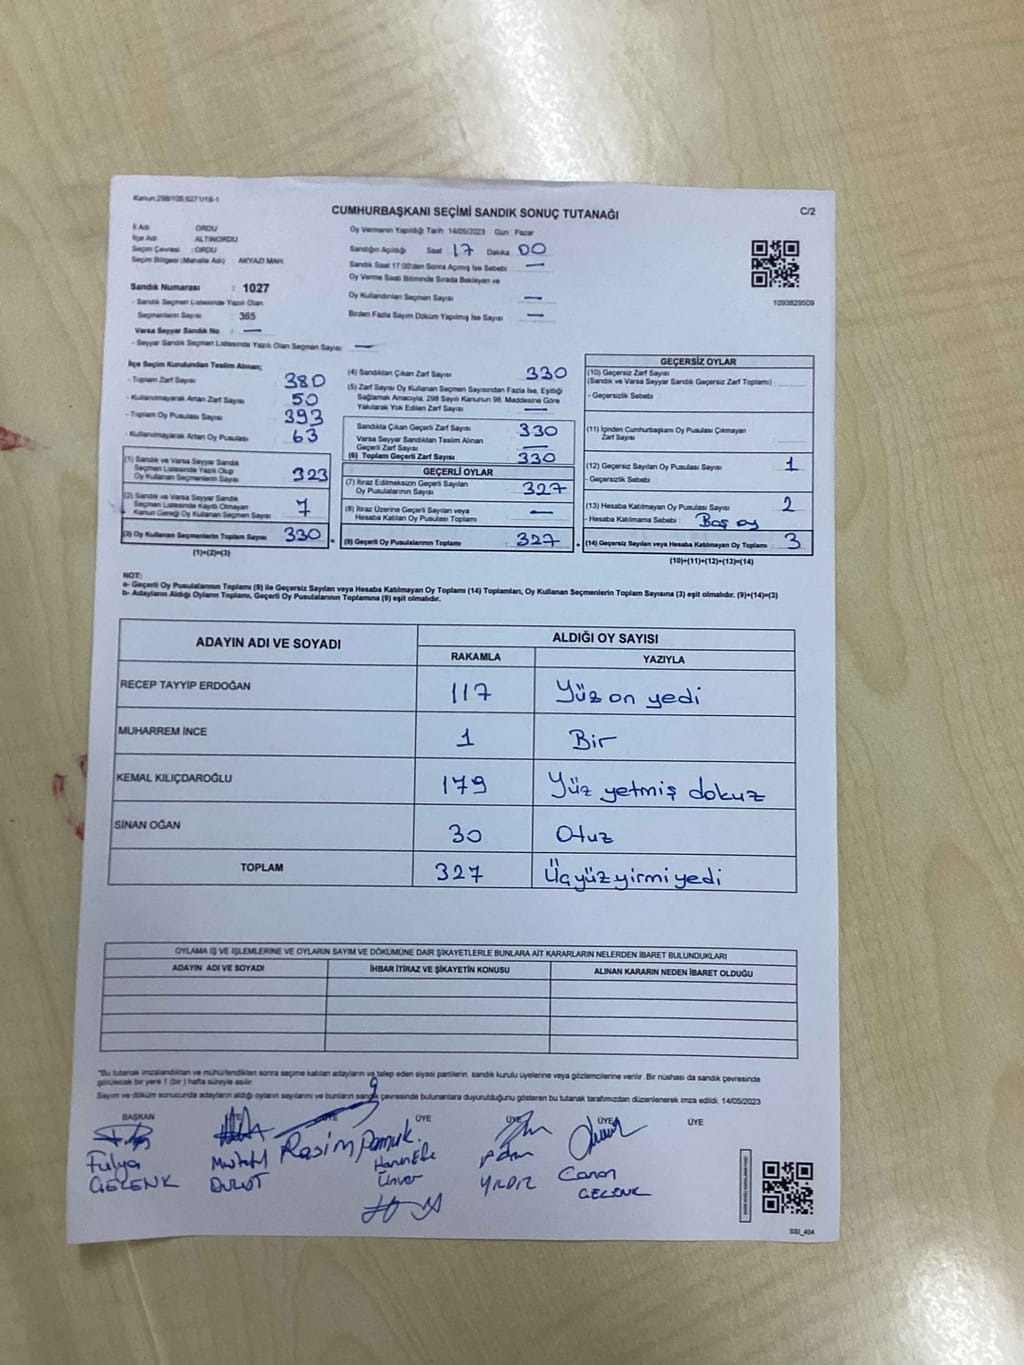 Kanun:298/105;6271/18-1
CUMHURBAŞKANI SEÇİMİ SANDIK SONUÇ TUTANAĞI
C/2
İl Adı ORDU
İlçe Adı ALTINORDU
Seçim Çevresi : ORDU
Seçim Bölgesi (Mahalle Adı) : AKYAZI MAH.
Sandık Numarası : 1027
- Sandık Seçmen Listesinde Yazılı Olan
Seçmenlerin Sayısı : 365
Varsa Seyyar Sandık No : —
- Seyyar Sandık Seçmen Listesinde Yazılı Olan Seçmen Sayısı: —
Oy Vermenin Yapıldığı Tarih :14/05/2023 Gün : Pazar
Sandığın Açıldığı Saat 17 Dakika 00
Sandık Saat 17:00'den Sonra Açılmış İse Sebebi —
Oy Verme Saati Bitiminde Sırada Bekleyen ve
Oy Kullandırılan Seçmen Sayısı —
Birden Fazla Sayım Döküm Yapılmış İse Sayısı —
1093829509
İlçe Seçim Kurulundan Teslim Alınan;
- Toplam Zarf Sayısı 380
- Kullanılmayarak Artan Zarf Sayısı 50
- Toplam Oy Pusulası Sayısı 393
- Kullanılmayarak Artan Oy Pusulası 63
(1) Sandık ve Varsa Seyyar Sandık
Seçmen Listesinde Yazılı Olup
Oy Kullanan Seçmenlerin Sayısı 323
(2) Sandık ve Varsa Seyyar Sandık
Seçmen Listesinde Kayıtlı Olmayan
Kanun Gereği Oy Kullanan Seçmen Sayısı 7
(3) Oy Kullanan Seçmenlerin Toplam Sayısı 330
(1)+(2)=(3)
(4) Sandıktan Çıkan Zarf Sayısı 330
(5) Zarf Sayısı Oy Kullanan Seçmen Sayısından Fazla İse, Eşitliği
Sağlamak Amacıyla, 298 Sayılı Kanunun 98. Maddesine Göre
Yakılarak Yok Edilen Zarf Sayısı —
Sandıkta Çıkan Geçerli Zarf Sayısı 330
Varsa Seyyar Sandıktan Teslim Alınan
Geçerli Zarf Sayısı —
(6) Toplam Geçerli Zarf Sayısı 330
GEÇERLİ OYLAR
(7) İtiraz Edilmeksizin Geçerli Sayılan
Oy Pusulalarının Sayısı 327
(8) İtiraz Üzerine Geçerli Sayılan veya
Hesaba Katılan Oy Pusulası Toplamı —
(9) Geçerli Oy Pusulalarının Toplamı 327
GEÇERSİZ OYLAR
(10) Geçersiz Zarf Sayısı
(Sandık ve Varsa Seyyar Sandık Geçersiz Zarf Toplamı)
- Geçersizlik Sebebi
(11) İçinden Cumhurbaşkanı Oy Pusulası Çıkmayan
Zarf Sayısı
(12) Geçersiz Sayılan Oy Pusulası Sayısı 1
- Geçersizlik Sebebi
(13) Hesaba Katılmayan Oy Pusulası Sayısı 2
- Hesaba Katılmama Sebebi : Boş oy
(14) Geçersiz Sayılan veya Hesaba Katılmayan Oy Toplamı 3
(10)+(11)+(12)+(13)=(14)
NOT:
a- Geçerli Oy Pusulalarının Toplamı (9) ile Geçersiz Sayılan veya Hesaba Katılmayan Oy Toplamı (14) Toplamları, Oy Kullanan Seçmenlerin Toplam Sayısına (3) eşit olmalıdır. (9)+(14)=(3)
b- Adayların Aldığı Oyların Toplamı, Geçerli Oy Pusulalarının Toplamına (9) eşit olmalıdır.
ADAYIN ADI VE SOYADI ALDIĞI OY SAYISI
RAKAMLA YAZIYLA
RECEP TAYYİP ERDOĞAN 117 Yüz on yedi
MUHARREM İNCE 1 Bir
KEMAL KILIÇDAROĞLU 179 Yüz yetmiş dokuz
SİNAN OĞAN 30 Otuz
TOPLAM 327 Üçyüzyirmiyedi
OYLAMA İŞ VE İŞLEMLERİNE VE OYLARIN SAYIM VE DÖKÜMÜNE DAİR ŞİKAYETLERLE BUNLARA AİT KARARLARIN NELERDEN İBARET BULUNDUKLARI
ADAYIN ADI VE SOYADI İHBAR İTİRAZ VE ŞİKAYETİN KONUSU ALINAN KARARIN NEDEN İBARET OLDUĞU
*Bu tutanak imzalandıktan ve mühürlendikten sonra seçime katılan adayların ve talep eden siyasi partilerin sandık kurulu üyelerine veya gözlemcilerine verilir. Bir nüshası da sandık çevresinde
görülecek bir yere 1 (bir) hafta süreyle asılır.
Sayım ve döküm sonucunda adayların aldığı oyların sayılarını ve bunların sandık çevresinde bulunanlara duyurulduğunu gösteren bu tutanak tarafımızdan düzenlenerek imza edildi. 14/05/2023
BAŞKAN ÜYE ÜYE ÜYE ÜYE ÜYE
Fulya
GELENK
DURUT
Rasim Pamuk
Ünver
YILDIZ
Canan
GELENK
SSİ_404